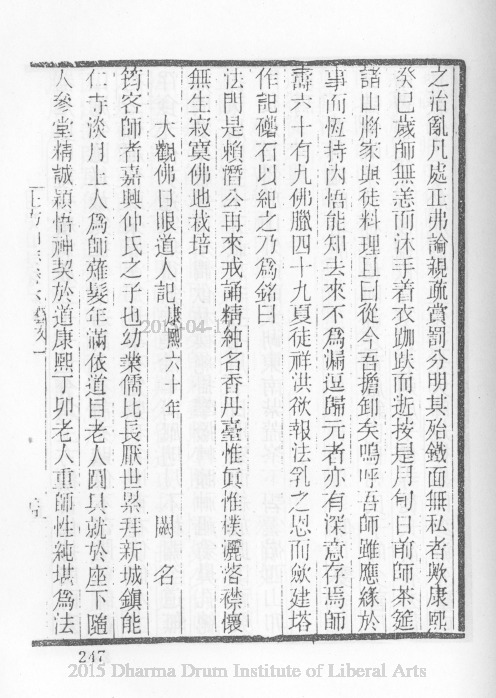 之治亂凡處正弗論親疏賞罰分明其殆鐵面無私者歟康熙
癸巳歲師無恙而沐手着衣跏趺而逝按是月旬日前師茶筵
諸山將家與徒料理且曰從今吾擔卸矣嗚呼吾師雖應緣於
事而恆持內悟能知去來不爲漏逗歸元者亦有深意存焉師
壽六十有九佛臘四十九夏徒祥洪欲報法乳之恩而歛建塔
作記礲石以紀之乃爲銘曰
法門是賴潛公再來戒誦精純名香丹臺惟眞惟樸灑落襟懷
無生寂寞佛地栽培
大觀佛日眼道人記 康熙六十年 闕名
筠容師者嘉興仲氏之子也幼業儒比長厭世累拜新城鎮能
仁寺淡月上人爲師薙髮年滿依道目老人圓具就於座下隨
人參堂精誠穎悟神契於道康熙丁卯老人重師性純堪爲法
2015-04-1
247
2015 Dharma Drum Institute of Liberal Arts